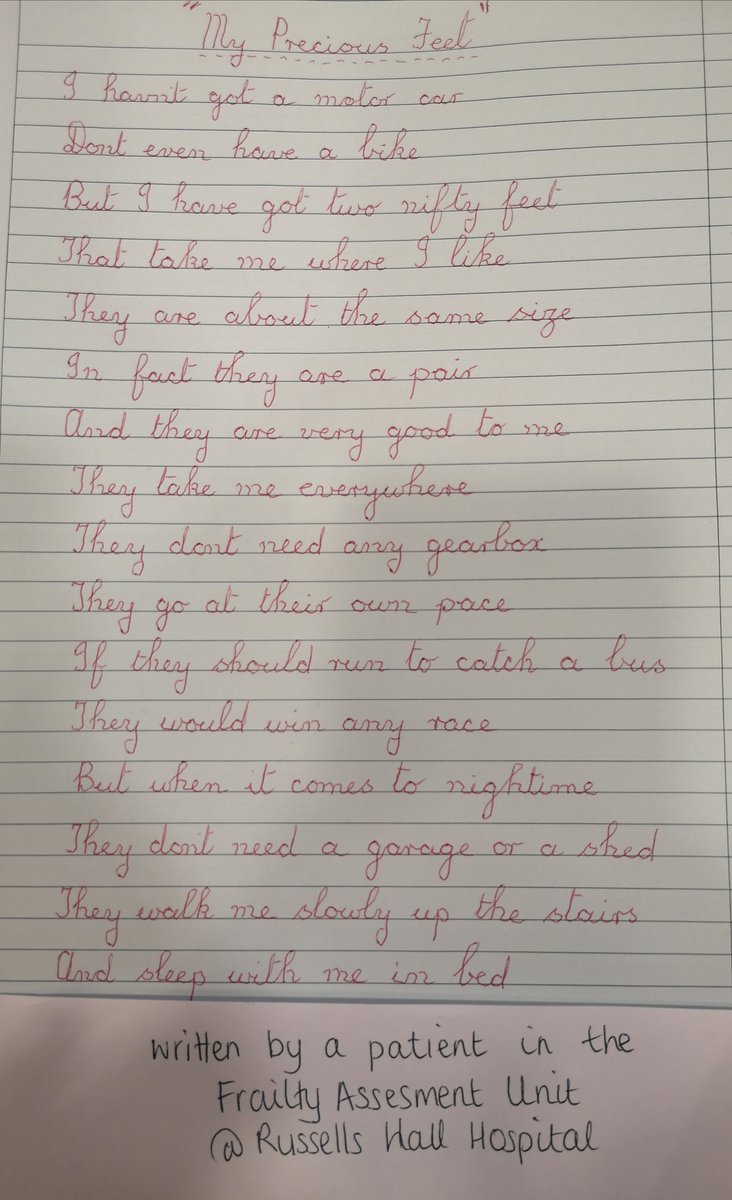 "My Precious Feet"
I havn't got a motor car
Dont even have a bike
But I have got two nifty feet
That take me where I like
They are about the same size
In fact they are a pair
And they are very good to me
They take me everywhere
They dont need any gearbox
They go at their own pace
If they should run to catch a bus
They would win any race
But when it comes to nightime
They don't need a garage or a shed
They walk me slowly up the stairs
And sleep with me in bed
written by a patient in the
Frailty Assesment Unit
@ Russells Hall Hospital